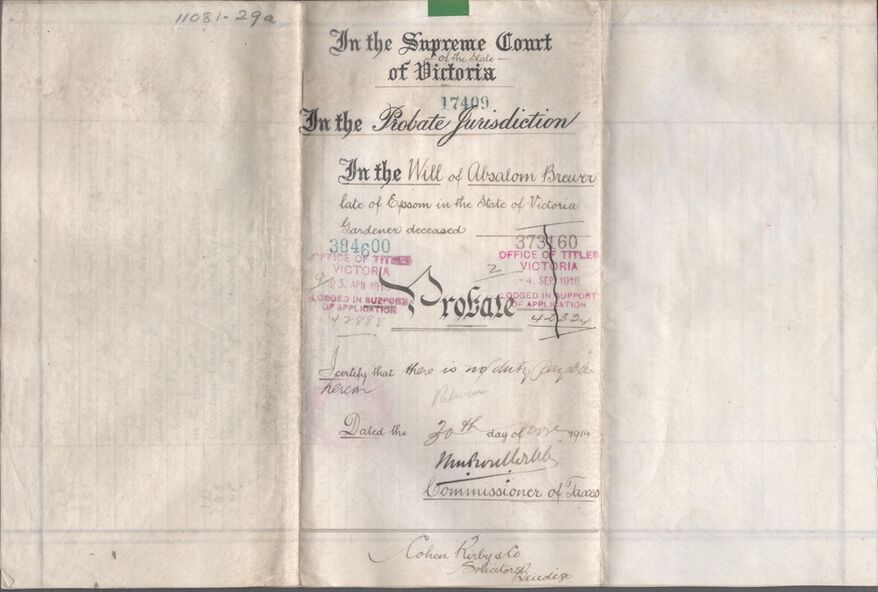 11081-29a
In the Supreme Court
of the State
of Victoria
17409
In the Probate Jurisdiction
In the Will of Absalom Brewer
late of Epsom in the State of Victoria
Gardener deceased
384600
373160
OFFICE OF TITLES
VICTORIA
23. APR 191
LODGED IN SUPPORT
OF APPLICATION
OFFICE OF TITLES
VICTORIA
-4. SEP 1916
LODGED IN SUPPORT
OF APPLICATION
2
Probate
I certify that there is no duty payable
herein
Dated the 30th day of 1914
Commissioner of Taxes
Cohen Kirby & Co
Solicitors
Bendigo